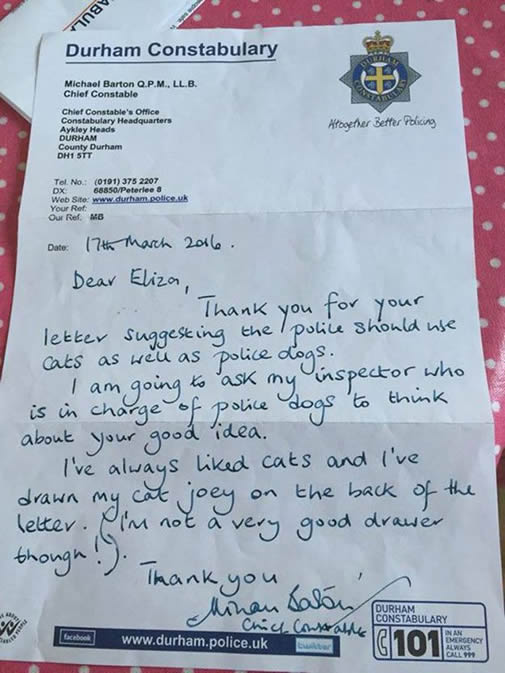 Durham Constabulary
Michael Barton Q.P.M., LL.B.
Chief Constable
Chief Constable's Office
Constabulary Headquarters
Aykley Heads
DURHAM
County Durham
DH1 5TT
DURHAM
CONSTABULARY
Altogether Better Policing
Tel. No.: (0191) 375 2207
DX: 68850/Peterlee 8
Web Site: www.durham.police.uk
Your Ref:
Our Ref: MB
Date: 17th March 2016.
Dear Eliza,
Thank you for your
letter suggesting the police should use
cats as well as police dogs.
I am going to ask my inspector who
is in charge of police dogs to think
about your good idea.
I've always liked cats and I've
drawn my cat joey on the back of the
letter. (I'm not a very good drawer
though!).
Thank you
Chief Constable
facebook
www.durham.police.uk
twitter
DURHAM
CONSTABULARY
101
IN AN
EMERGENCY
ALWAYS
CALL 999